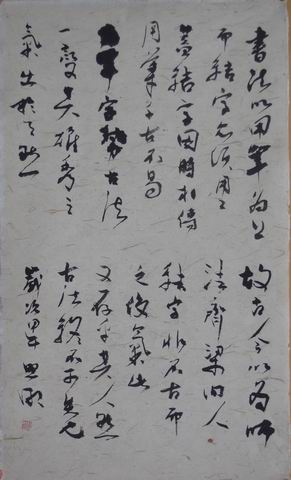 書法以用筆為上
而結字亦須用工
蓋結字因時相傳
用筆千古不易
右軍字勢古法
一變其雄秀之
氣出於天然
故古今以為師
法齊梁間人
結字非不古而
乏俊氣此
又存乎其人然
古法終不可失也
歲次甲午